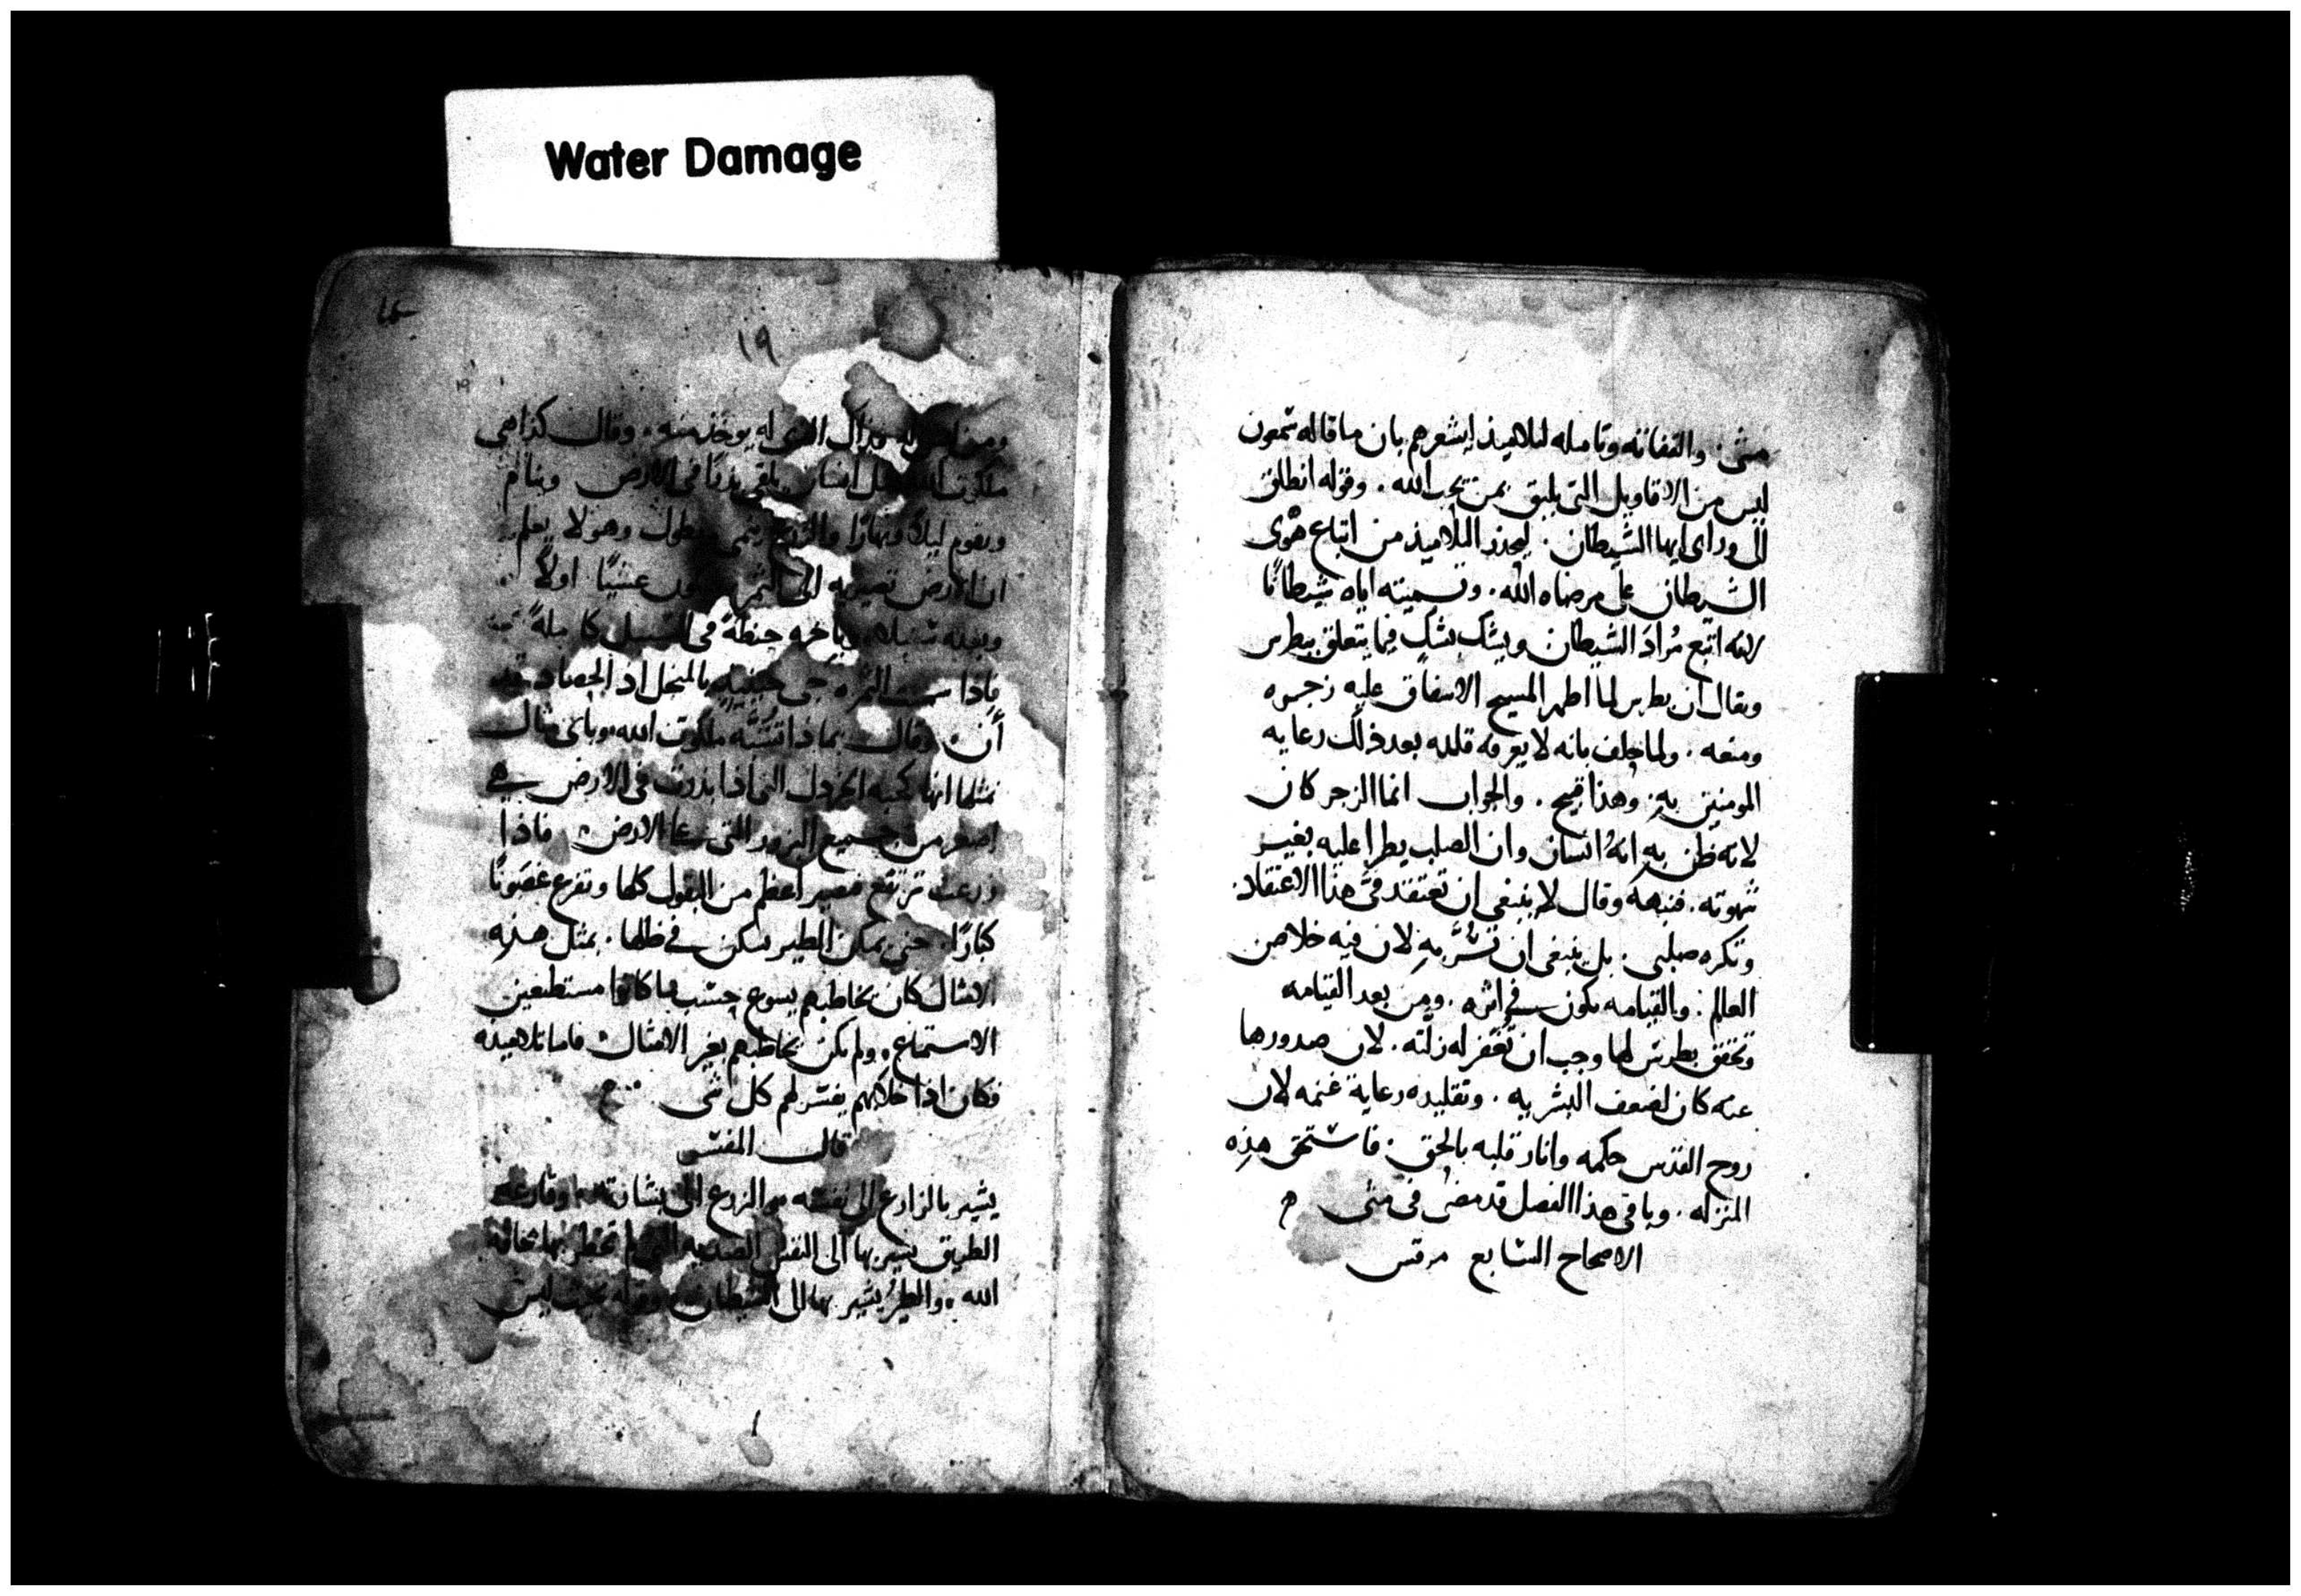 Water Damage
متى. والتفاته وتامله لتلاميذه ليشعرهم بان ما قاله شمعون
ليس من الاقاويل التي يليق بمن يحب الله. وقوله انطلق
الى وراى ايها الشيطان. ليحذر التلاميذ من اتباع هوى
الشيطان على مرضاه الله. وتسميته اياه شيطانًا
لانه اتبع مُرادَ الشيطان ويشك بشك فيما يتعلق ببطرس
ويقال ان بطرس لما اظهر المسيح الاشفاق عليه زجره
ومنعه. ولما حلف بانه لا يعرفه قلده بعد ذلك رعايه
المومنين به وهذا قبيح. والجواب انما الزجر كان
لانه ظن به انهُ انسان وان الصلب يطرا عليه بغير
شهوته. فنبهه وقال لا ينبغي ان تعتقد فيَّ هذا الاعتقاد
وتكره صلبي. بل ينبغي ان تُسَرَّ بهِ لان فيه خلاص
العالم. والقيامه تكون في اثره. ومن بعد القيامه
وتحقق بطرس لها وجب ان تغفر له زلته. لان صدورها
عنه كان لضعف البشريه. وتقليده رعاية غنمه لان
روح القدس حكمه وانار قلبه بالحق. فاستحق هذه
المنزله. وباقي هذا الفصل قد مضى في متى
الاصحاح السابع مرقس
١٩
له يوخذ منه. وقال كذا هي
ملكوت الله انسان يلقي بذرًا في الارض وينام
ويقوم ليلاً ونهارًا والزرع ينمي ويطول وهو لا يعلم
ان الارض تصير به الى الثمر عشبًا اولاً
وبعده سنبلا حنطةً في السنبل كاملةً
فاذا الثمره بالمنجل اذ الحصاد قد
أن وقال بماذا تشبَّه ملكوت الله. وباى مثال
نمثلها انها كحبه الخردل التي اذا بذرت في الارض هي
اصغر من جميع البزور التي على الارض. فاذا
زرعت ترتفع فتصير اعظم من البقول كلها وتفرع غصونًا
كبارًا. حتى يمكن الطير سكن في ظلها. بمثل هذه
الامثال كان يخاطبهم يسوع حسب ما كانوا مستطيعين
الاستماع. ولم يكن يخاطبهم بغير الامثال فاما تلاميذه
فكان اذا خلا بهم يفسر لهم كل شي
قال المفسر
يشير بالزارع الى نفسه والزرع الى بشارته. وقارعه
الطريق يشير بها الى النفس
الله. والطير يشير بها الى الشيطان ليس